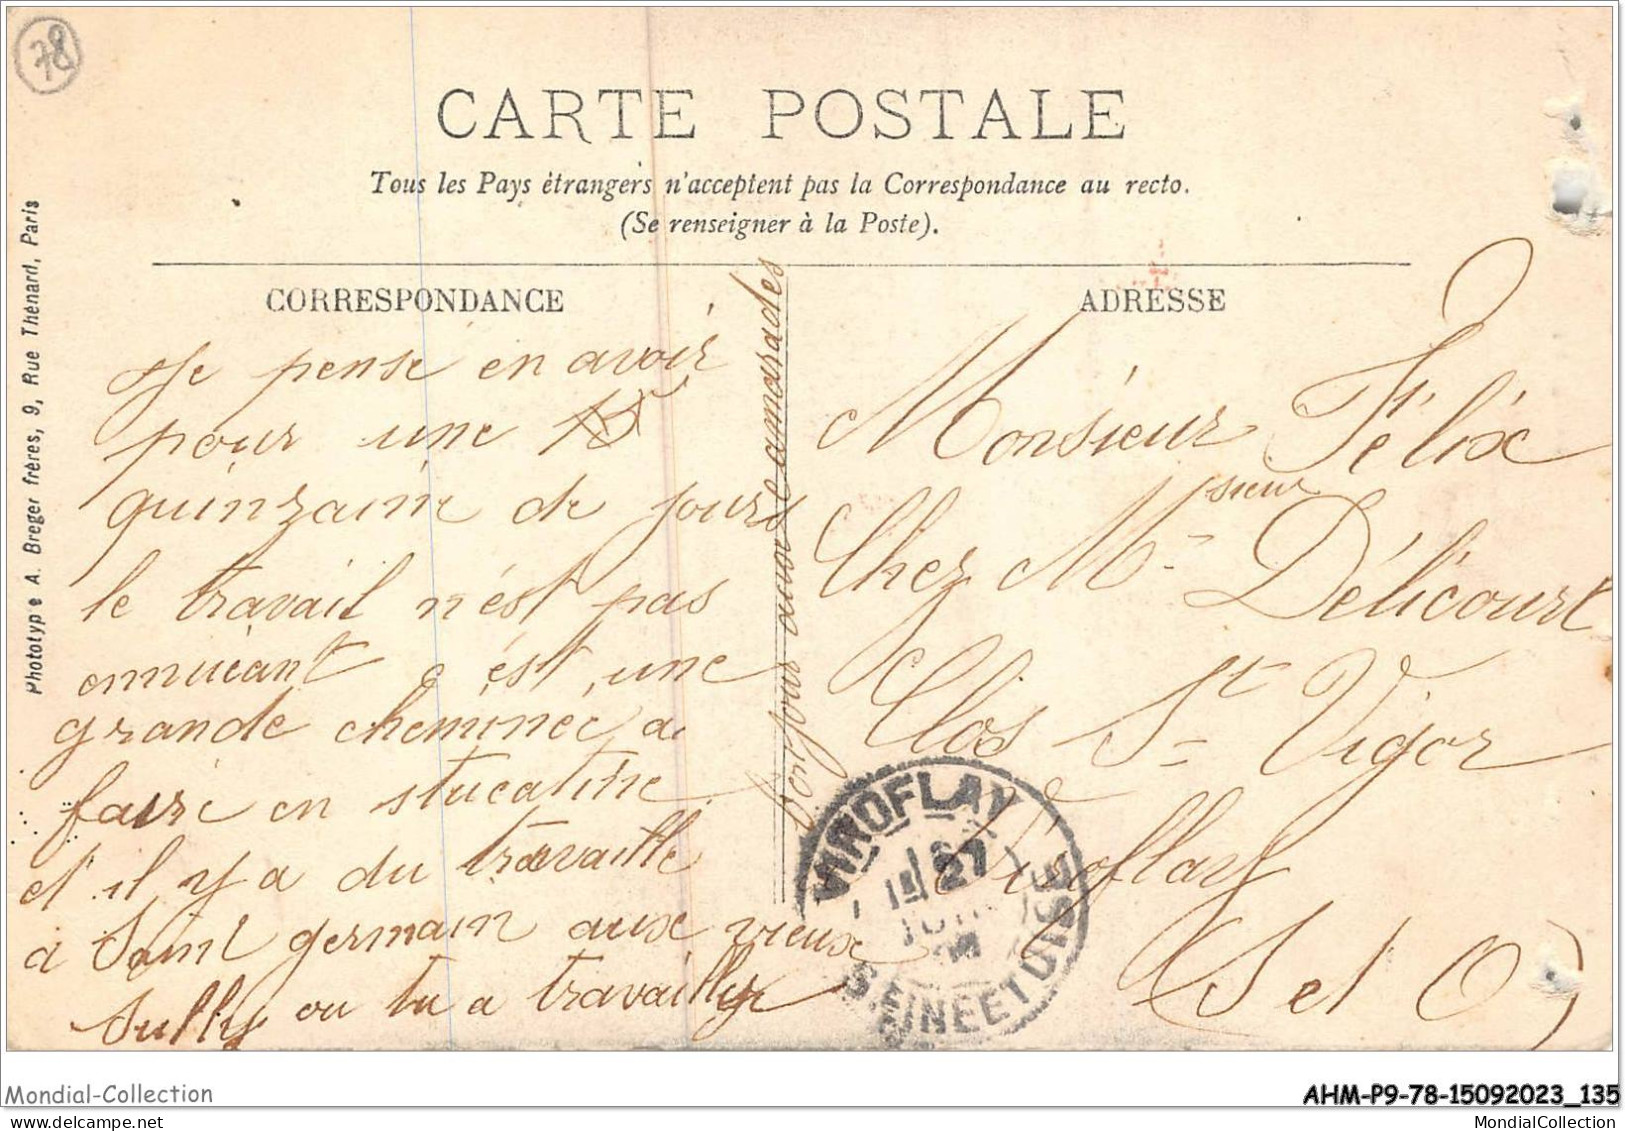 78
CARTE POSTALE
Tous les Pays étrangers n'acceptent pas la Correspondance au recto.
(Se renseigner à la Poste).
CORRESPONDANCE
ADRESSE
Phototypie A. Breger frères, 9, Rue Thénard, Paris
Je pense en avoir
pour une 15
quinzaine de jours
le travail n'est pas
ennuieant c'est une
grande cheminée a
faire en stucatine
et il y a du travaille
a Saint germain aux vieux
Sully ou tu a travailly
Bonjour aux camarades
Monsieur Félix
Chez Mr sieur Délicourt
Clos St Vigor
Viroflay
(S et O)
VIROFLAY
27
SEINE ET OISE
Mondial-Collection
AHM-P9-78-15092023_135
MondialCollection